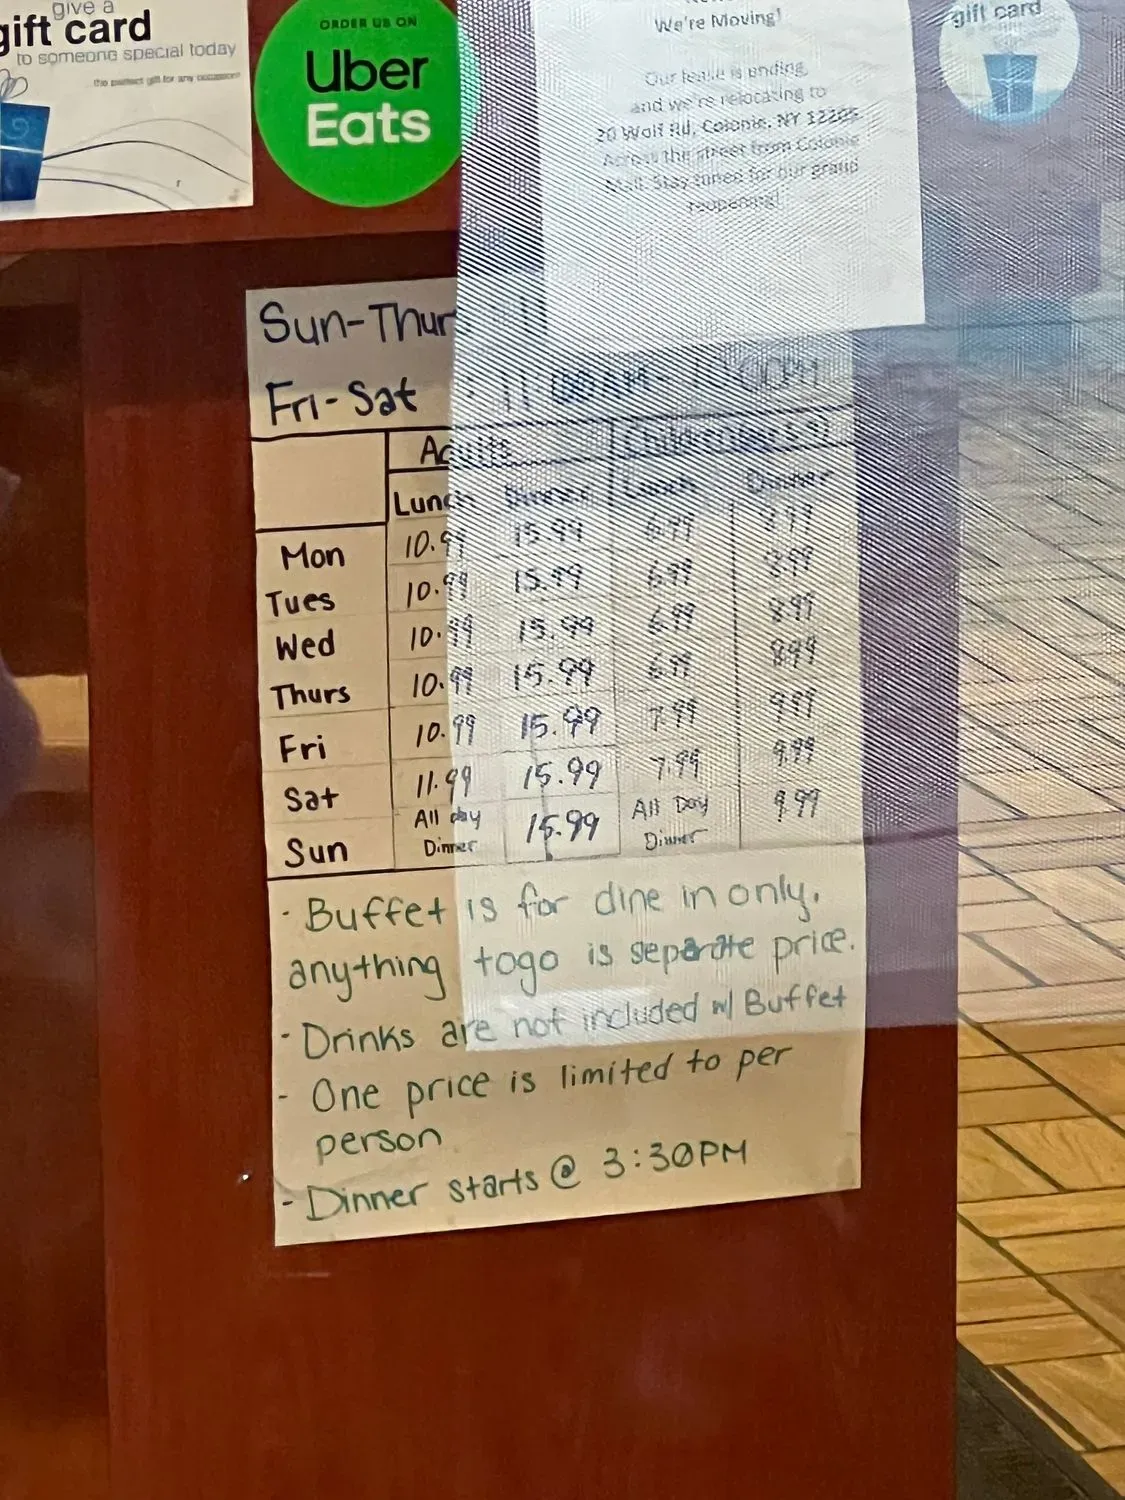 give a
gift card
to someone special today
the perfect gift for any occasion!
ORDER US ON
Uber
Eats
We're Moving!
Our lease is ending,
and we're relocating to
20 Wolf Rd, Colonie, NY 12205
Across the street from Colonie
Mall. Stay tuned for our grand
reopening!
gift card
Sun-Thur
Fri-Sat
Adults Children
Lunch Dinner Lunch Dinner
Mon 10.99 15.99 6.99 8.99
Tues 10.99 15.99 6.99 8.99
Wed 10.99 15.99 6.99 8.99
Thurs 10.99 15.99 6.99 8.99
Fri 10.99 15.99 7.99 9.99
Sat 11.99 15.99 7.99 9.99
Sun All day Dinner 15.99 All Day Dinner 9.99
· Buffet is for dine in only,
anything togo is separate price.
· Drinks are not included w/ Buffet
- One price is limited to per
person
- Dinner starts @ 3:30PM